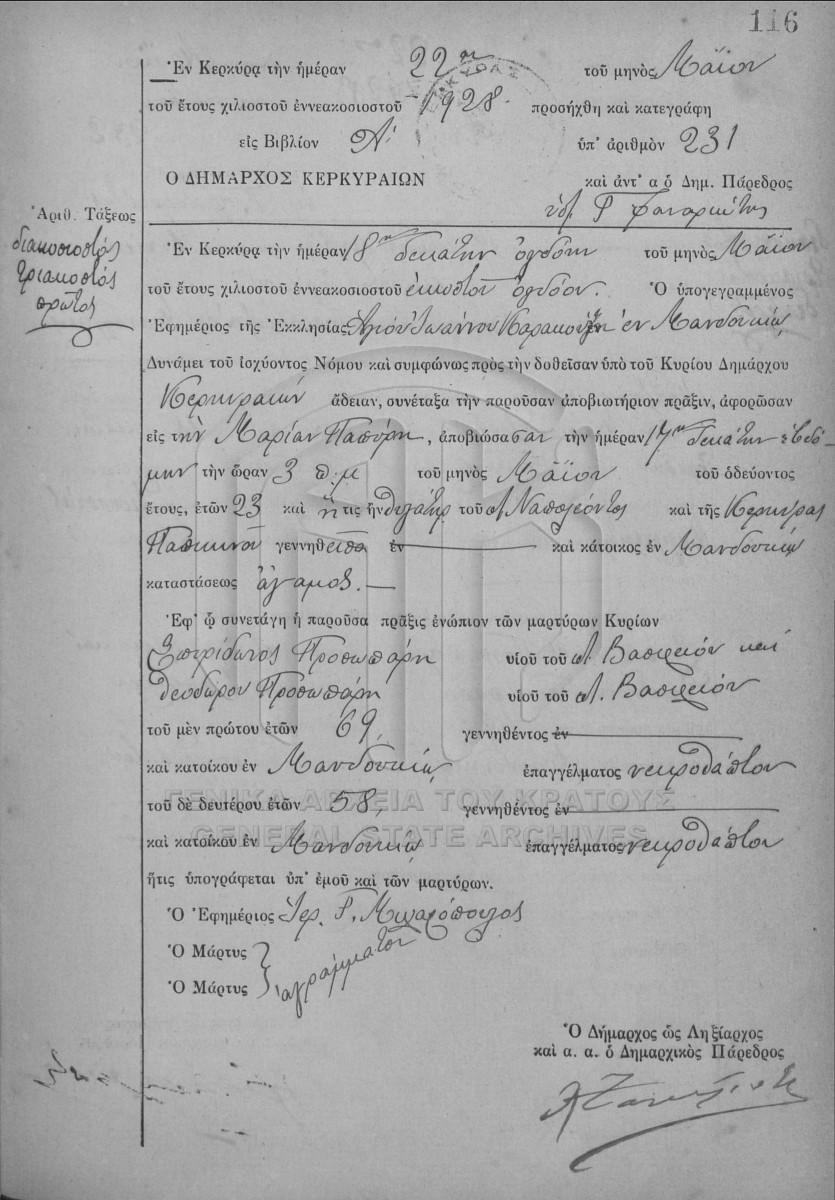 116
Ἐν Κερκύρᾳ τὴν ἡμέραν 22αν τοῦ μηνὸς Μαΐου
τοῦ ἔτους χιλιοστοῦ ἐννεακοσιοστοῦ 1928. προσήχθη καὶ κατεγράφη
εἰς Βιβλίον Α' ὑπ' ἀριθμὸν 231
Ο ΔΗΜΑΡΧΟΣ ΚΕΡΚΥΡΑΙΩΝ καὶ ἀντ' α ὁ Δημ. Πάρεδρος
Ἀριθ. Τάξεως
διακοσιοστός
τριακοστός
πρῶτος
Ἐν Κερκύρᾳ τὴν ἡμέραν 18ην δεκάτην ὀγδόην τοῦ μηνὸς Μαΐου
τοῦ ἔτους χιλιοστοῦ ἐννεακοσιοστοῦ εἰκοστοῦ ὀγδόου. Ὁ ὑπογεγραμμένος
Ἐφημέριος τῆς Ἐκκλησίας Ἁγίου Ἰωάννου ἐν Μανδουκίῳ
Δυνάμει τοῦ ἰσχύοντος Νόμου καὶ συμφώνως πρὸς τὴν δοθεῖσαν ὑπὸ τοῦ Κυρίου Δημάρχου
Κερκυραίων ἄδειαν, συνέταξα τὴν παροῦσαν ἀποβιωτήριον πρᾶξιν, ἀφορῶσαν
εἰς τὴν Μαρίαν, ἀποβιώσασαν τὴν ἡμέραν 17ην δεκάτην ἑβδό-
μην τὴν ὥραν 3 π.μ τοῦ μηνὸς Μαΐου τοῦ ὁδεύοντος
ἔτους, ἐτῶν 23 καὶ ἥτις ἦν θυγάτηρ τοῦ Ναπολέοντος καὶ τῆς Κερκύρας
γεννηθεῖσα ἐν καὶ κάτοικος ἐν Μανδουκίῳ
καταστάσεως ἄγαμος.
Ἐφ' ᾧ συνετάγη ἡ παροῦσα πρᾶξις ἐνώπιον τῶν μαρτύρων Κυρίων
Σπυρίδωνος Προσωπάρη υἱοῦ τοῦ Βασιλείου καὶ
Θεοδώρου Προσωπάρη υἱοῦ τοῦ Βασιλείου
τοῦ μὲν πρώτου ἐτῶν 69, γεννηθέντος ἐν
καὶ κατοίκου ἐν Μανδουκίῳ ἐπαγγέλματος νεκροθάπτου
τοῦ δὲ δευτέρου ἐτῶν 58, γεννηθέντος ἐν
ΓΕΝΙΚΑ ΑΡΧΕΙΑ ΤΟΥ ΚΡΑΤΟΥΣ
GENERAL STATE ARCHIVES
καὶ κατοίκου ἐν Μανδουκίῳ ἐπαγγέλματος νεκροθάπτου
ἥτις ὑπογράφεται ὑπ' ἐμοῦ καὶ τῶν μαρτύρων.
Ὁ Ἐφημέριος Ἱερ. Γ.
Ὁ Μάρτυς
Ὁ Μάρτυς ἀγράμματοι
Ὁ Δήμαρχος ὡς Ληξίαρχος
καὶ α. α. ὁ Δημαρχικὸς Πάρεδρος